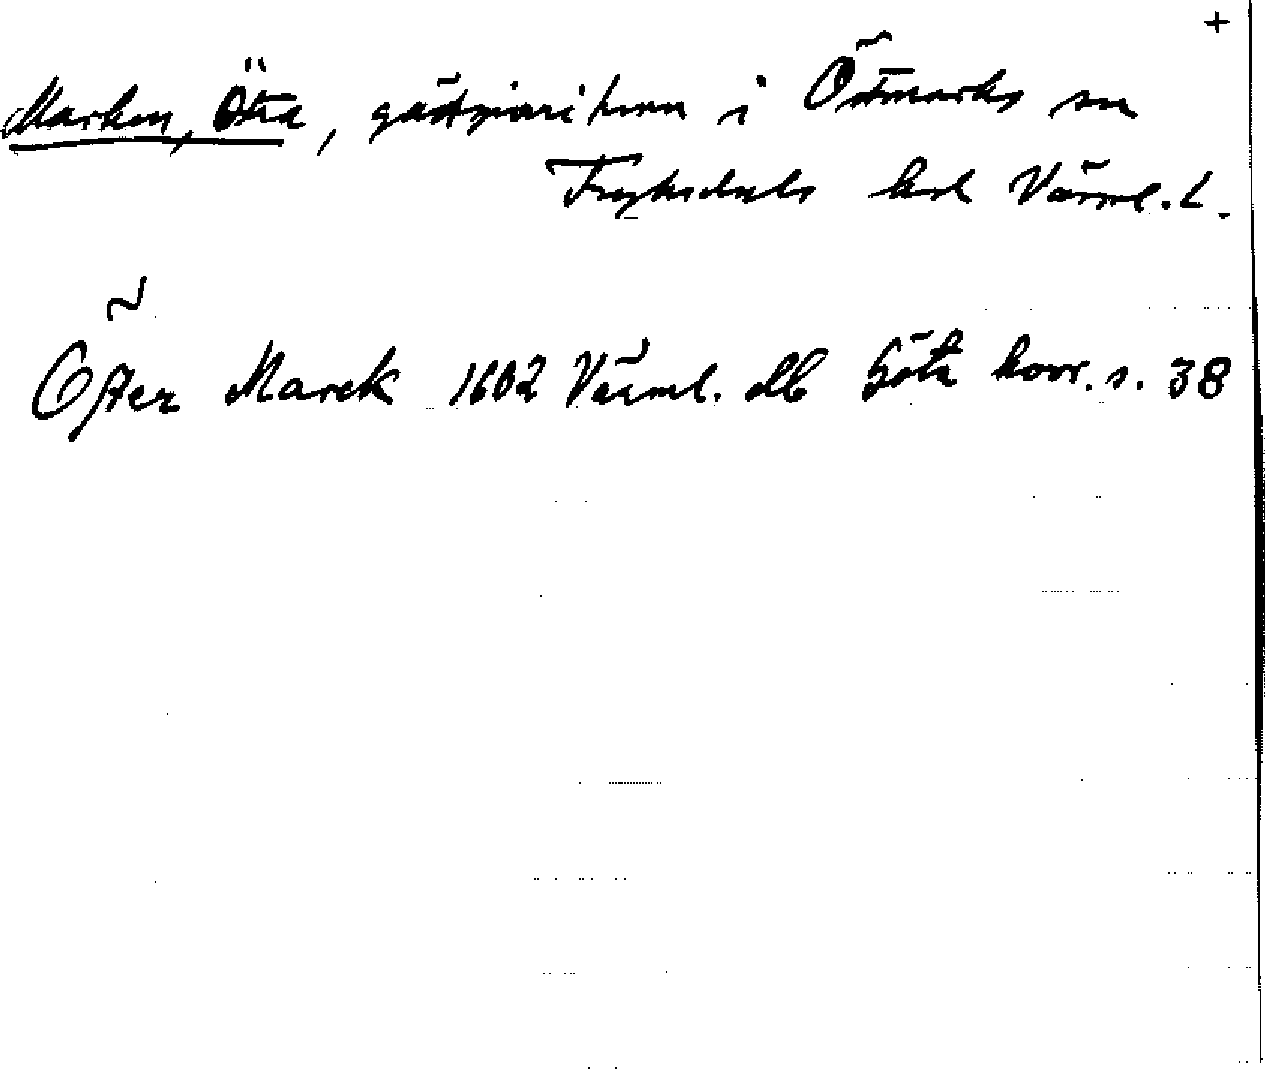 +
Marken, Östra, gästgivarihemn i Östmarks sn
Fryksdals hd Värml. L.
Öster Marck 1602 Värml. Hb Göta korr. s. 38